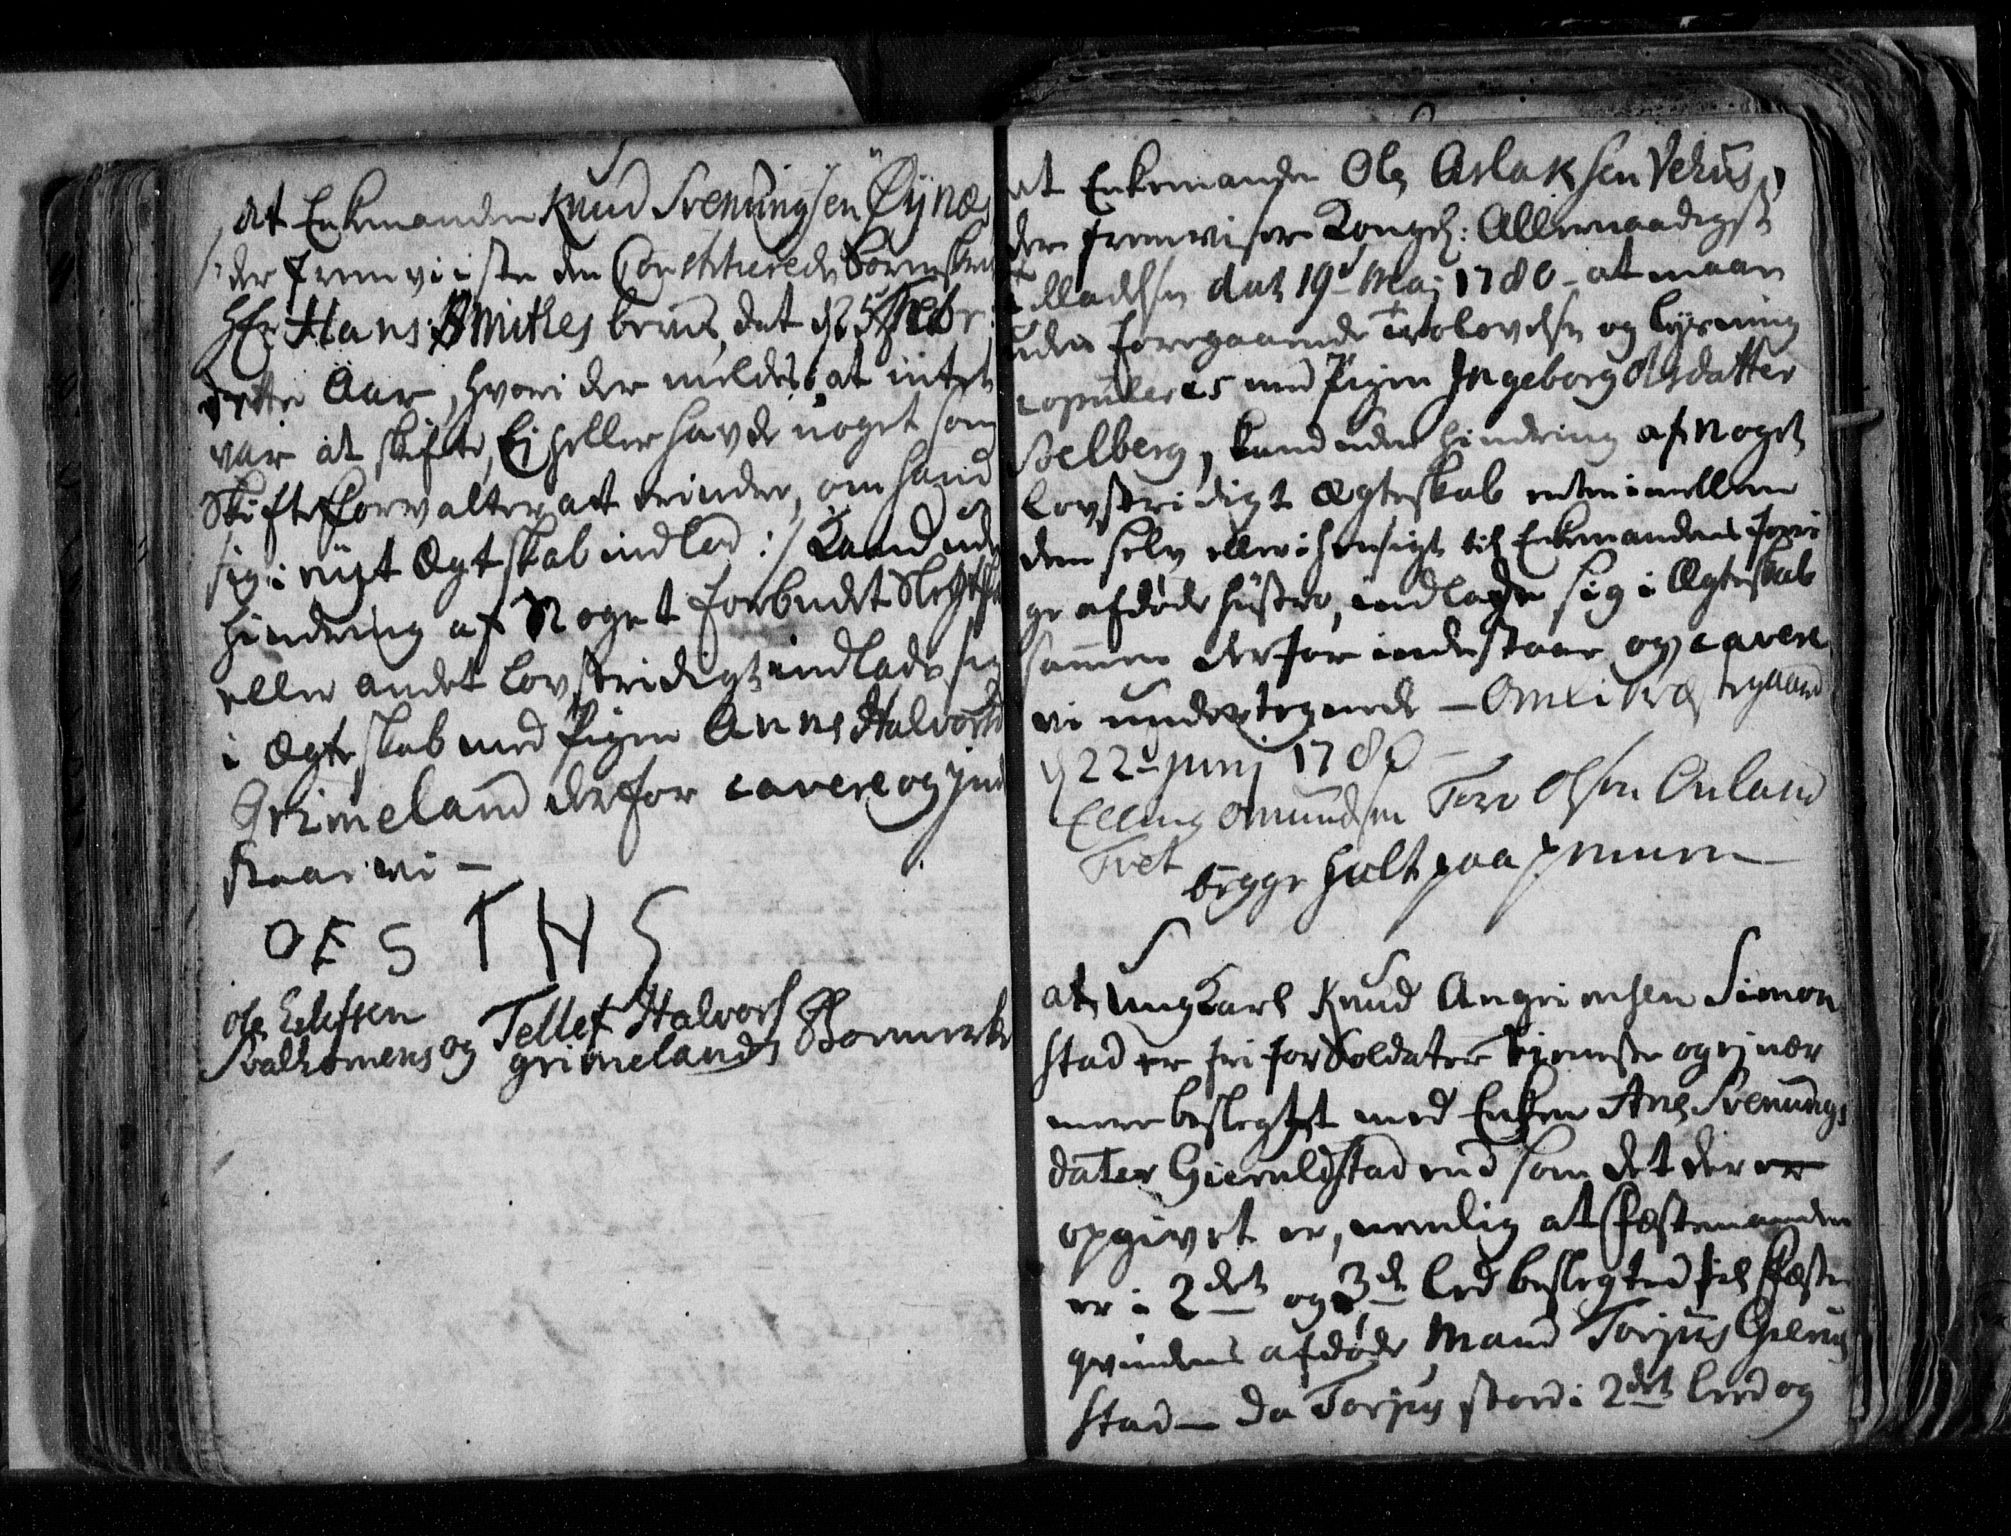 at Enkemanden Knud Svenungsen Øynæs
/: der fremviiste den Constituerede Sorenskriv
Hr. Hans Smithes beviis, dat. d. 25 Febr:
dette Aar, hvori der meldes, at intet
var at skifte, Ei heller havde noget som
Skifteforvalter at erindre, om hand
sig i nyt Ægteskab indlod :/ Kand uden
hindring af Noget forbudet Slegtskab
eller andet lovstridigt indlade sig
i Ægteskab med Pigen Anne Halvorsd
Grimeland derfor cavere og ind
staar vi —
O E S T H S
Ole Ellefsen Tellef Halvors
Svalhomens og Grimelands Bomerke
at Enkemanden Ole Aslaksen Vehus,
der fremviser Kongel: Allernaadigst
tilladelse dat 19d Maj 1780 - at maae
uden foregaaende Trolovelse og lysning
copuleres med Pigen Ingeborg Olsdatter
Selberg, kand uden hindring af noget
lovstridigt Ægteskab enten imellem
dem selv eller i hensigt til Enkemandens forri
ge afdøde hustro, indlade sig i Ægteskab
sammen derfor indestaar og cavere
vi undertegnede — Omli Præstegaard
d 22d Junj 1780 —
Elling Omundsen Tore Olsen Ouland
Tvet
begge holt paa pennen —
at Ung Karl Knud Angrimsen Simon
stad er fri for Soldater Tjeneste og ej nær
mere beslegtet med Enken Ane Svenungs
datter Gierulstad end som det der er
opgivet er, nemlig at Fæstemanden
er i 2det og 3de led beslegted til Fæste
qvindens afdøde Mand Torjus Gierul
stad — da Torjus stod i 2det leed og